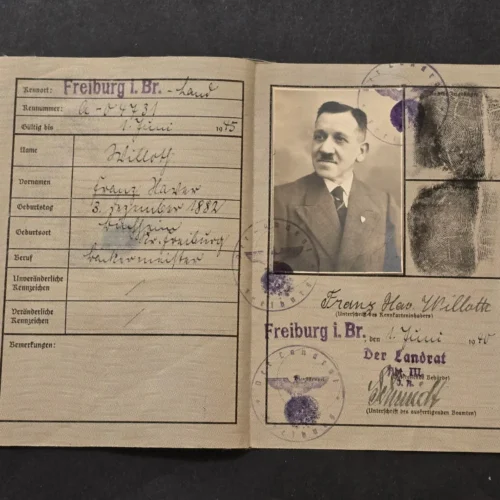 Kennort: Freiburg i. Br. - Land
Kennummer: A-04731
Gültig bis 1. Juni 1945
Name Willoth
Vornamen Franz Xaver
Geburtstag 3. Dezember 1882
Geburtsort Buchheim
Kr. Freiburg
Beruf Bäckermeister
Unveränderliche
Kennzeichen
Veränderliche
Kennzeichen
Bemerkungen:
Franz Xav. Willoth
(Unterschrift des Kennkarteninhabers)
Freiburg i. Br., den 1. Juni 1940
Der Landrat
Abt. III
J. A.
Schmidt
(Unterschrift des ausfertigenden Beamten)